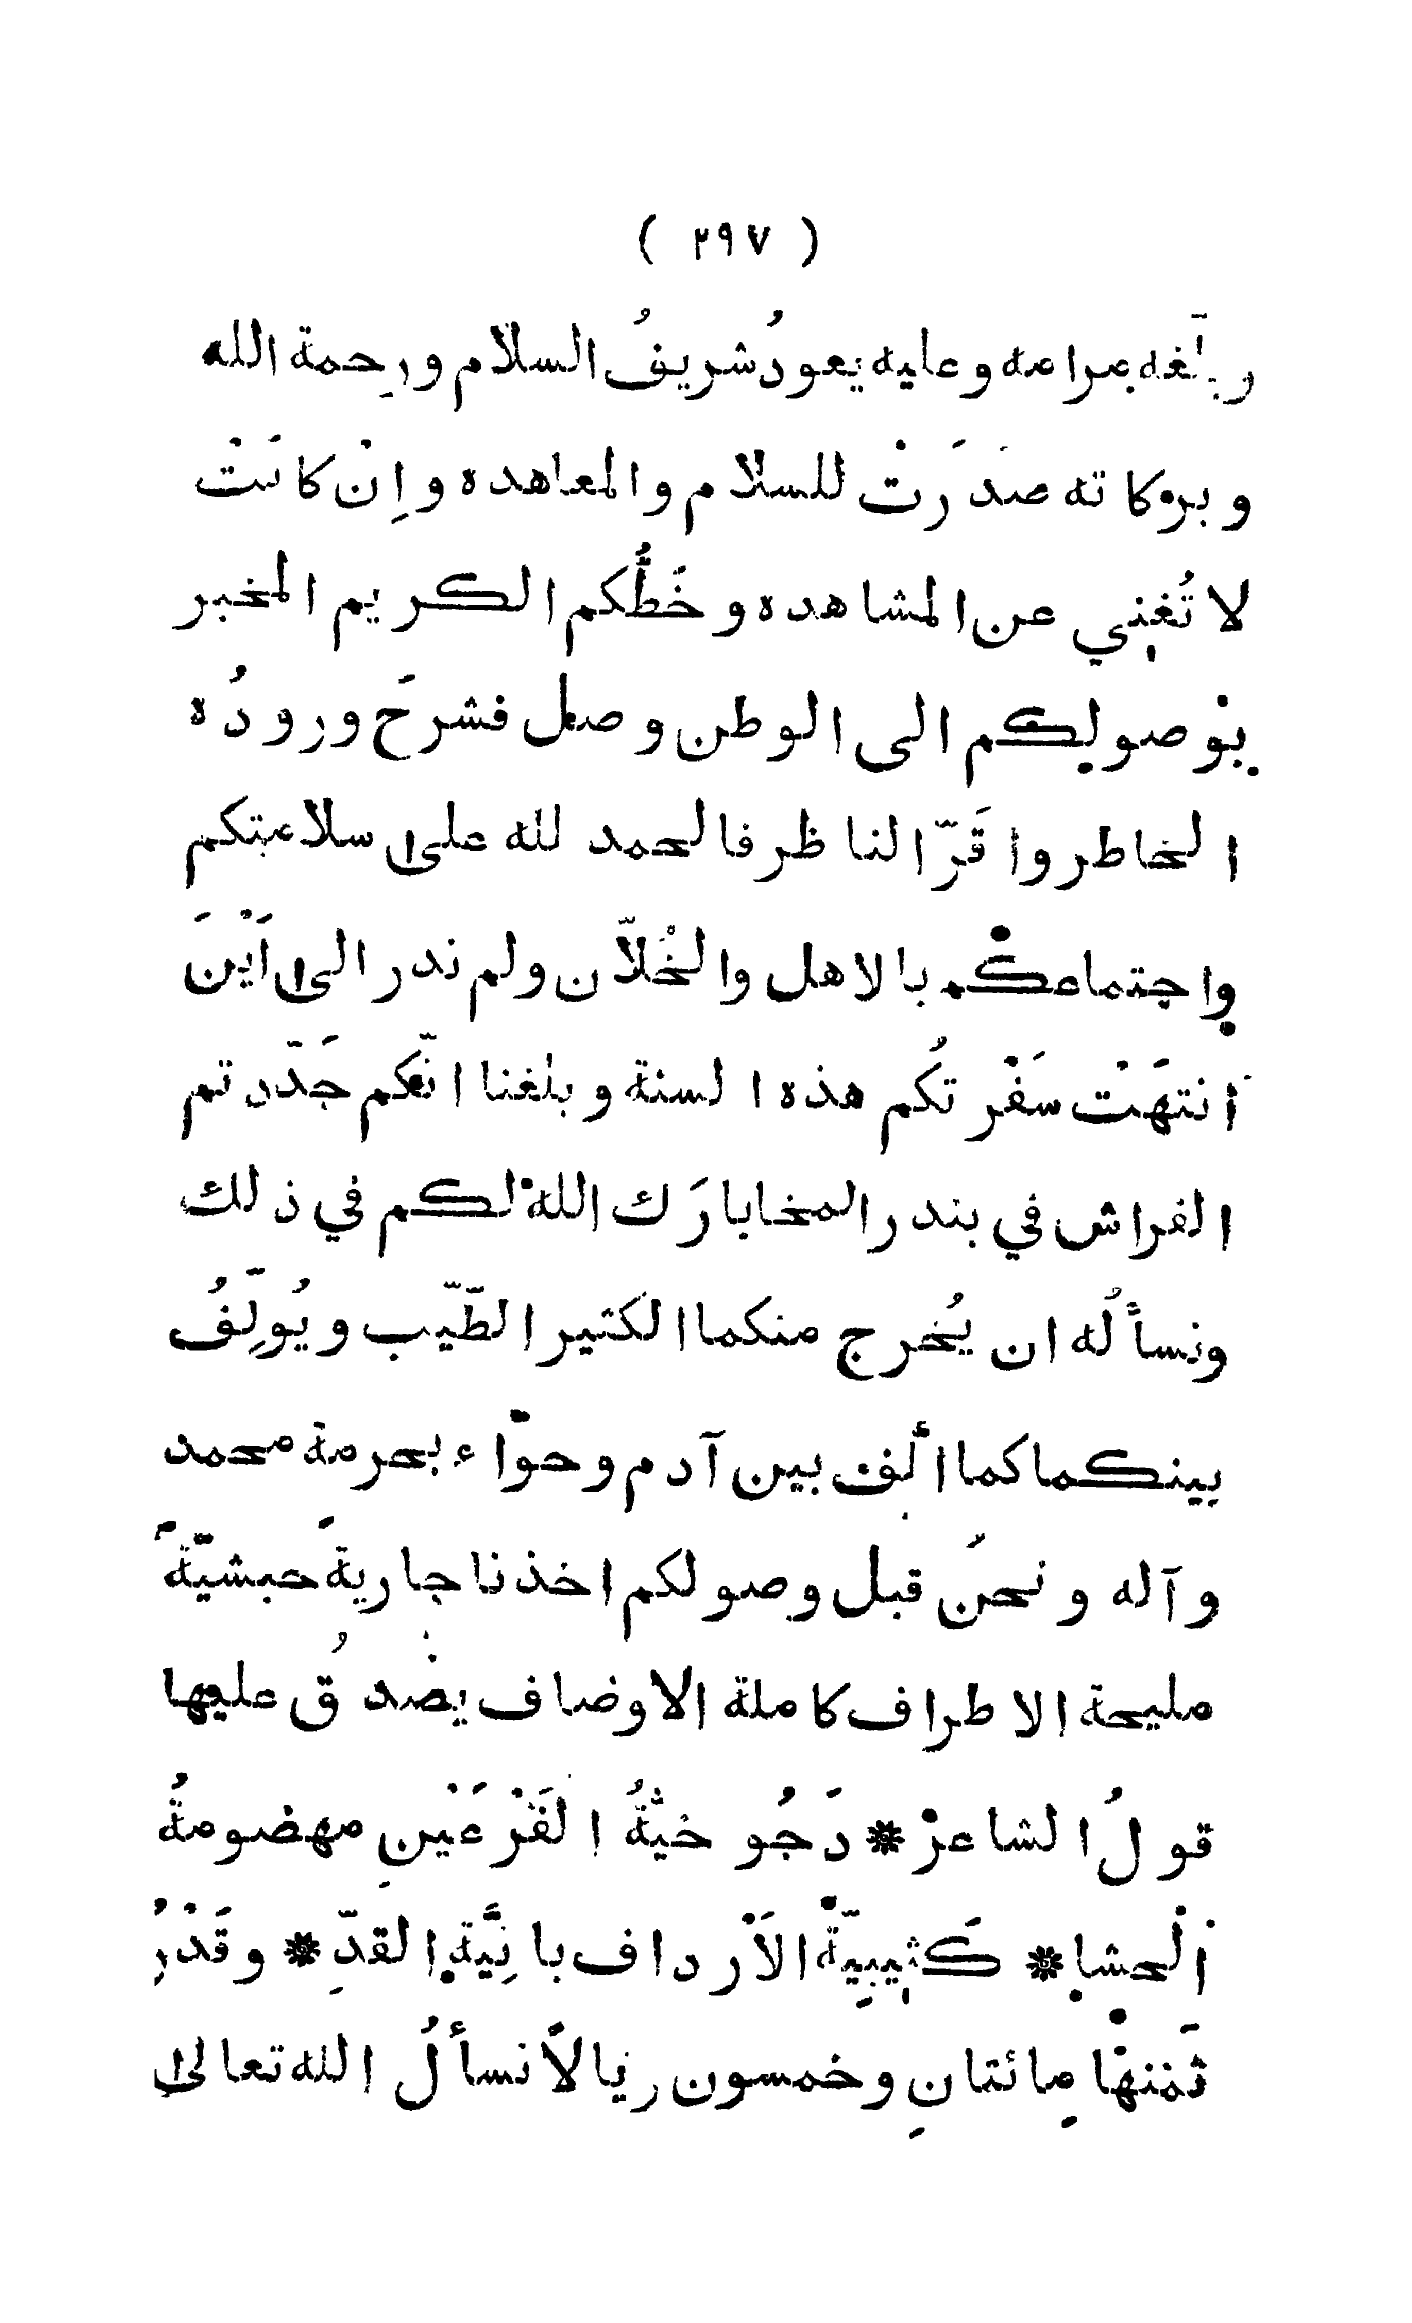 ( ٢٩٧ )
وبلّغه مرامه وعليه يعودُ شريفُ السلام ورحمة الله
وبركاته صدَرَتْ للسلام والمعاهده وإنْ كانَتْ
لا تُغني عن المشاهده وخَطُّكم الكريم المخبر
بوصولكم الى الوطن وصل فشرحَ ورودُه
الخاطر واقَرّ الناظر فالحمد لله على سلامتكم
واجتماعكم بالاهل والخُلاّن ولم ندر الى اَيْنَ
أنتهَتْ سَفْرتكُم هذه السنة وبلغنا انّكم جَدّدتم
الفراش في بندر المخا بارَك اللهُ لكم في ذلك
ونسألُه ان يُخرج منكما الكثير الطّيّب ويُولّفُ
بينكما كما ألّف بين آدم وحوّاء بحرمة محمد
وآله ونحنُ قبل وصولكم اخذنا جاريةً حبشيّةً
مليحة الاطراف كاملة الاوصاف يصْدُق عليها
قولُ الشاعرْ * دَجُوخيّةُ الفَرْعَيْنِ مهضومةُ
اْلحشا * كَثيبيّةْ الاَرداف بانِيَّة القدّ * وقَدْرُ
ثَمنها مائتانِ وخمسون ريالاً نسألُ الله تعالى